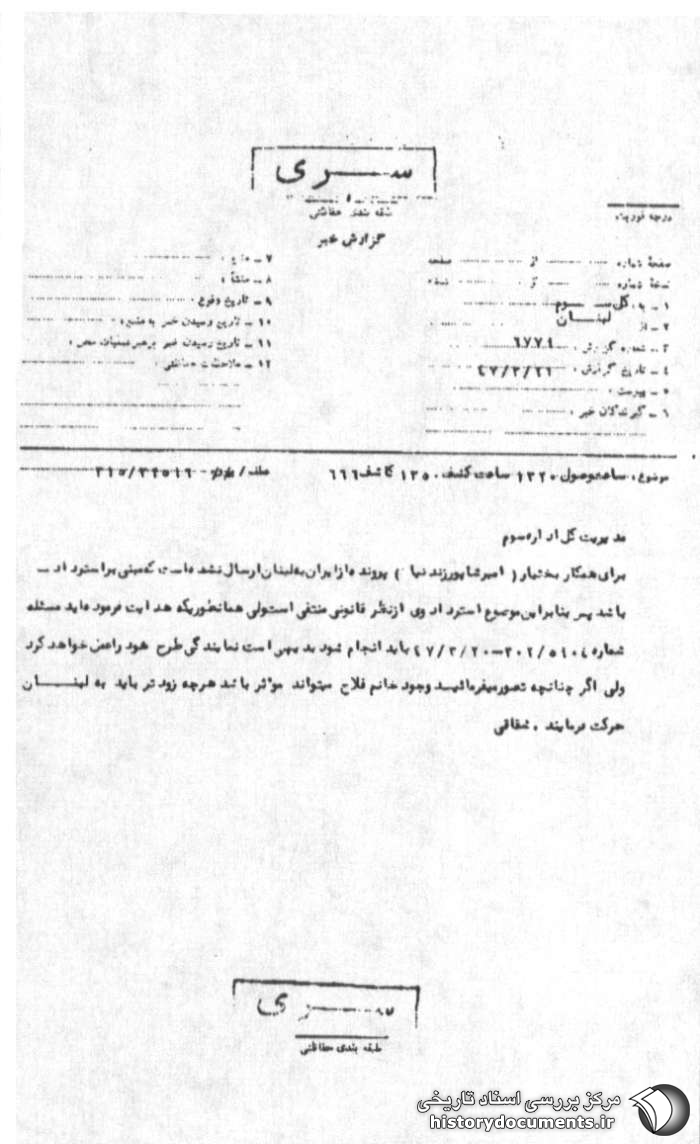 سری
طبقه بندی حفاظتی
گزارش خبر
درجه فوریت
صفحهٔ شماره از صفحه
نسخهٔ شماره از نسخه
۱ - به کل سوم
۲ - از لبنان
۳ - شماره گزارش ۶۷۷۹
۴ - تاریخ گزارش
۵ - پیوست
۶ - گیرندگان خبر
۷ -
۸ - منشأ
۹ - تاریخ وقوع
۱۰ - تاریخ رسیدن خبر به منبع
۱۱ - تاریخ رسیدن خبر برهبر عملیات محل
۱۲ - ملاحظات حفاظتی
موضوع ساعت وصول ۱۳۲۰ ساعت کشف ۱۳۵۰ کاشف ۶۶۶
مدیریت کل اداره سوم
برای همکار بختیار ( امیرشاپورزندنیا ) پرونده از ایران به لبنان ارسال نشده که مبنی براسترداد
باشد پس بنابراین موضوع استرداد وی ازنظر قانونی منتفی است ولی همانطوریکه هدایت فرموداید مسئله
شماره باید انجام شود بدیهی است نمایندگی طرح خود راعمل خواهد کرد
ولی اگر چنانچه تصورمیفرمائید وجود خانم فلاح میتواند موثر باشد هرچه زودتر باید به لبنان
حرکت فرمایند . شقاقی
سری
طبقه بندی حفاظتی
مرکز بررسی اسناد تاریخی
historydocuments.ir